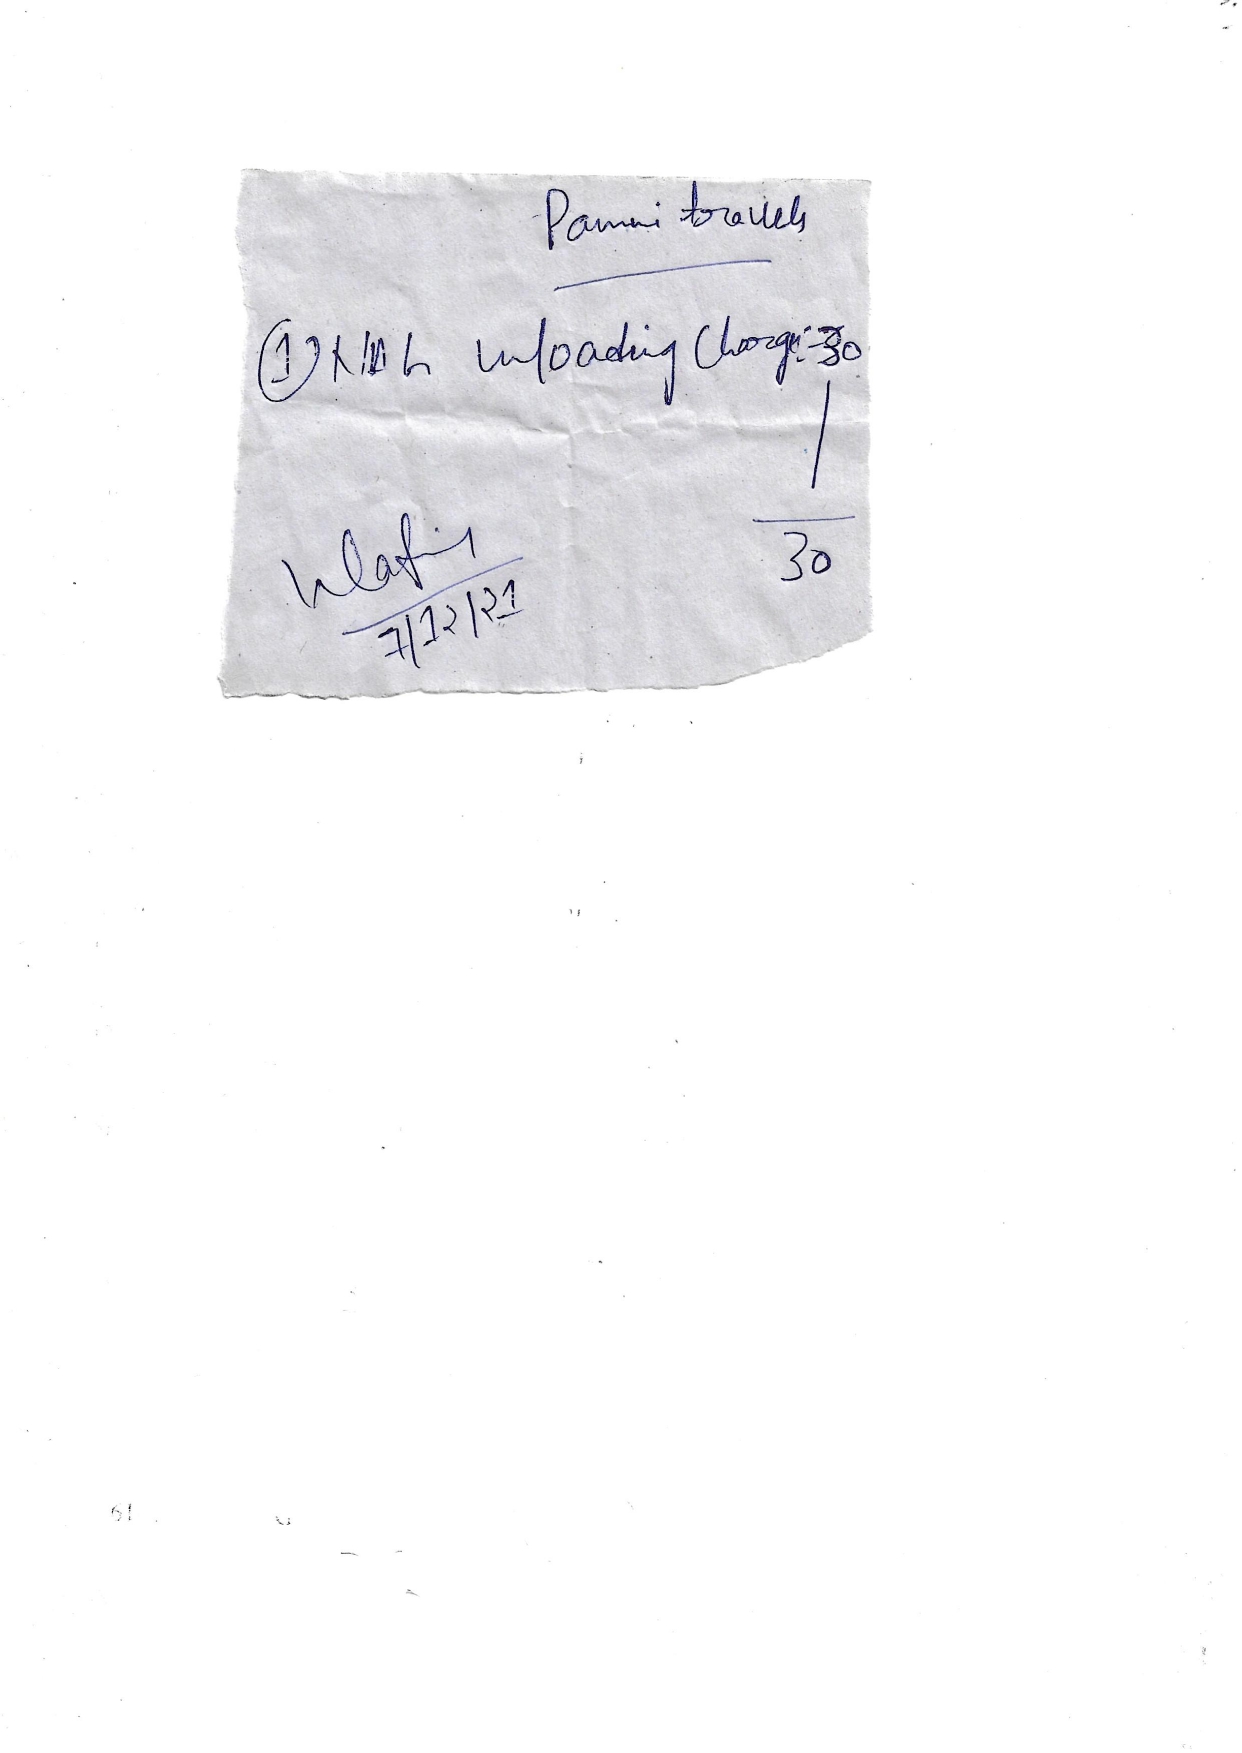 Pammi travels
① unloading Charge:-30
30
7/12/21